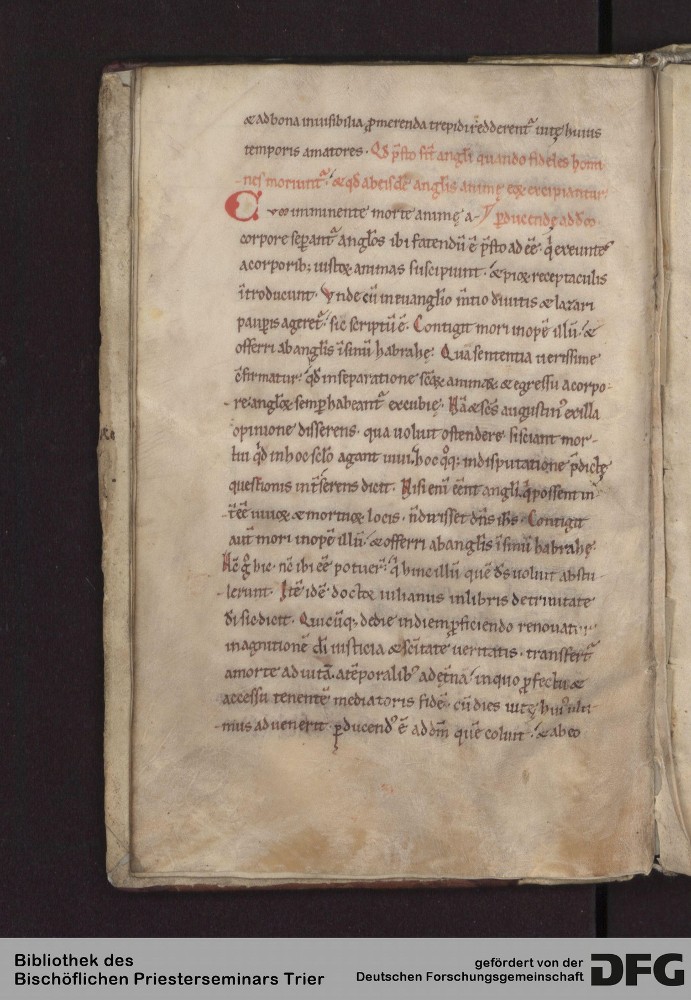 & ad bona inuisibilia ꝓmerenda trepidi redderent᷑ uitę huius
temporis amatores. Qd p̄sto sīt angli quando fideles homi
nes moriunt᷑. & qd ab eisdē anglis animę eoꝝ excipiantur
Cvm imminente morte animę a ꝑducendę ad dm̄.
corpore seꝑant᷑ anglos ibi fatendū ē p̄sto adeē. q̇ exeuntes
a corporib; iustoꝝ animas suscipiunt. & pioꝝ receptaculis
ītroducunt. Vnde cū in euanglio m̄tio diuitis & lazari
pauꝑis ageret᷑. sic scriptū ē. Contigit mori inopē illū. &
offerri ab anglis ī sinū habrahę. Qua sententia uerissime
c̄firmatur. qd in separatione scāꝝ animaꝝ. & egressu a corpo-
re. angloꝝ semꝑ habeant᷑ excubię. Nā & scs̄ augustin᷒ ex illa
opinione disserens. qua uoluit ostendere si sciant mor-
tui qd in hoc sclo agant uiui. hoc qͦq; in disputatione p̄dictę
questionis int̄serens dicit. Nisi enī eēnt angli. q̇ possent in-
t̄eē uiuoꝝ & mortuoꝝ locis. n̄ dixisset dn̄s ihs̄. Contigit
aut̄ mori inopē illū. & offerri ab anglis ī sinū habrahę.
Nc̄ gͦ hic. nc̄ ibi eē potuer̄. q̇ hinc illū quē ds̄ uoluit abstu-
lerunt. Itē idē doctor iulianus in libris de trinitate
di sic dicit. Quicūq; de die in diem ꝓficiendo renouatur
in agnitionē di iusticia & scītate ueritatis. transfert᷑
a morte ad uitā. a tēporalib᷒ ad etn̄a. in quo ꝓfectu &
accessu tenentē mediatoris fidē. cū dies uitę hui᷒ ulti-
mus aduenerit. ꝑducend᷒ ē ad dm̄ quē coluit. & ab eo
Bibliothek des
Bischöflichen Priesterseminars Trier
gefördert von der
Deutschen Forschungsgemeinschaft
DFG